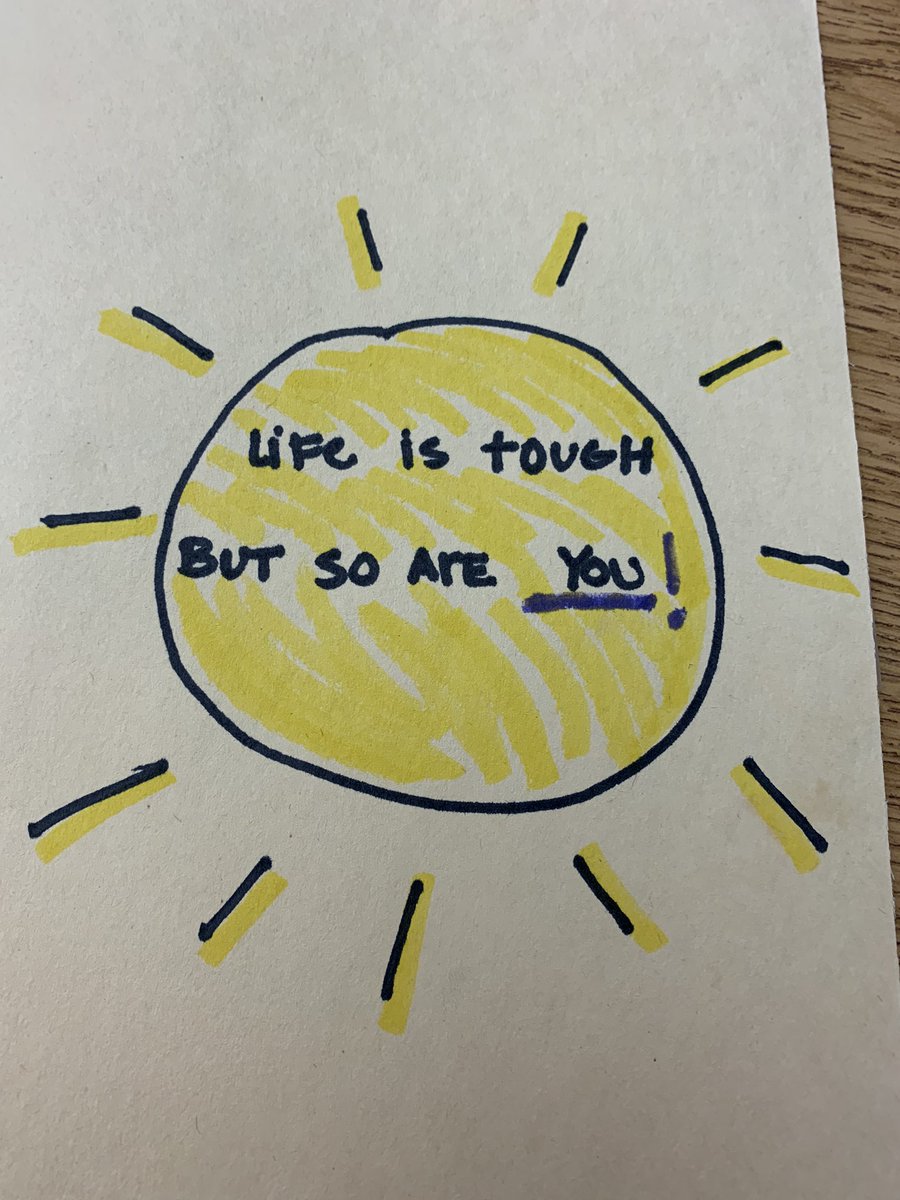 Life is tough
But so are You!